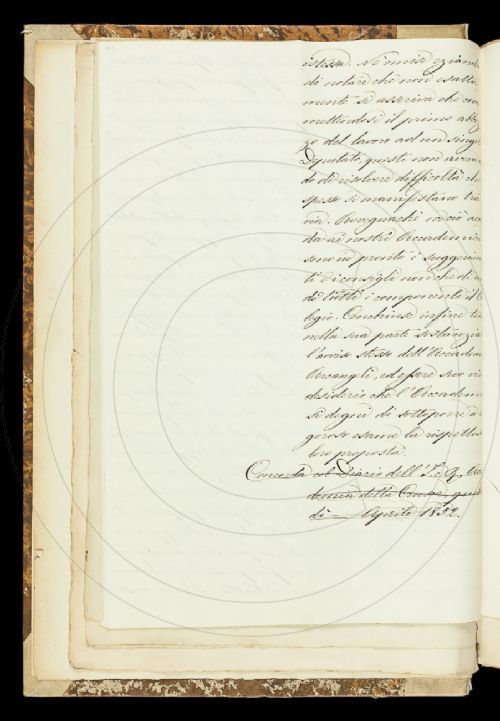 istessa. Né omise eziand
di notare che non esatta
mente si asseriva che com
mettendosi il primo abboz
zo del lavoro ad un singo
Deputato, questi non avreb
do di risolvere difficoltà che
spesso si manifestano tra
via. Avvegnaché in ciò
da ai nostri Accademici
sono in pronto i suggerimen
ti di consigli non che di
di tutti i componenti il
legio. Conchiuse infine
nella sua parte sostanzia
l'avviso stesso dell'Accadem
Arcangeli, ed essere suo vi
desiderio che l'Accademia
si degni di sottoporre a
goroso esame la rispetto
loro proposta.
Concorda col Diario dell'I. e R. Acca
demia della Crusca, 
dì — Aprile 1852.